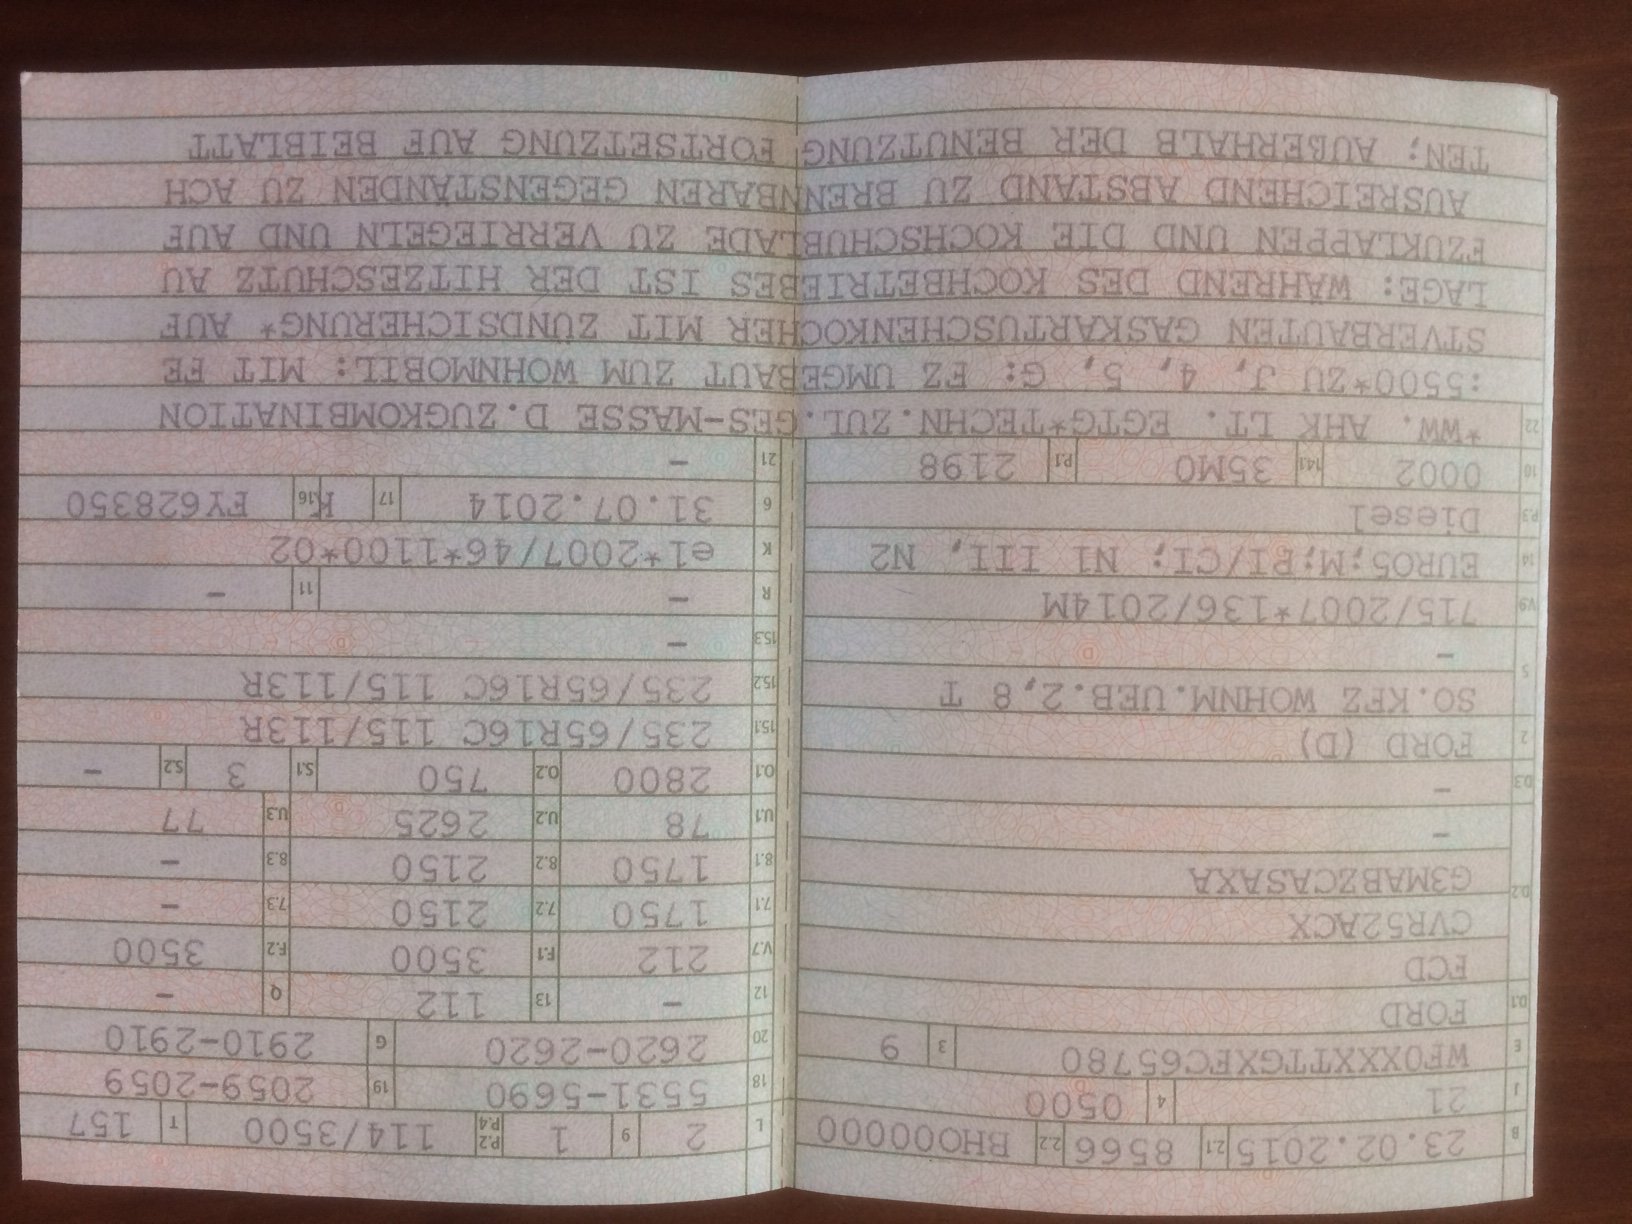 B 23.02.2015 2.1 8566 2.2 BH000000
J 21 4 0500
E WF0XXXTTGXFC65780 3 9
D.1 FORD
FCD
CVR52ACX
D.2 G3MABZCASAXA
-
D.3 -
2 FORD (D)
SO.KFZ WOHNM.UEB.2,8 T
5 -
V.9 715/2007*136/2014M
14 EURO5;M;PI/CI; N1 III, N2
P.3 Diesel
10 0002 14.1 35M0 P.1 2198
L 2 9 1 P.2 P.4 114/3500 T 157
18 5531-5690 19 2059-2059
20 2620-2620 G 2910-2910
12 - 13 112 Q -
V.7 212 F.1 3500 F.2 3500
7.1 1750 7.2 2150 7.3 -
8.1 1750 8.2 2150 8.3 -
U.1 78 U.2 2625 U.3 77
O.1 2800 O.2 750 S.1 3 S.2 -
15.1 235/65R16C 115/113R
15.2 235/65R16C 115/113R
15.3 -
R - 11 -
K e1*2007/46*1100*02
6 31.07.2014 17 K 16 FY628350
21 -
22 *WW. AHK LT. EGTG*TECHN.ZUL.GES-MASSE D.ZUGKOMBINATION
:5500*ZU J, 4, 5, G: FZ UMGEBAUT ZUM WOHNMOBIL: MIT FE
STVERBAUTEN GASKARTUSCHENKOCHER MIT ZÜNDSICHERUNG* AUF
LAGE: WÄHREND DES KOCHBETRIEBES IST DER HITZESCHUTZ AU
FZUKLAPPEN UND DIE KOCHSCHUBLADE ZU VERRIEGELN UND AUF
AUSREICHEND ABSTAND ZU BRENNBAREN GEGENSTÄNDEN ZU ACH
TEN; AUßERHALB DER BENUTZUNG FORTSETZUNG AUF BEIBLATT